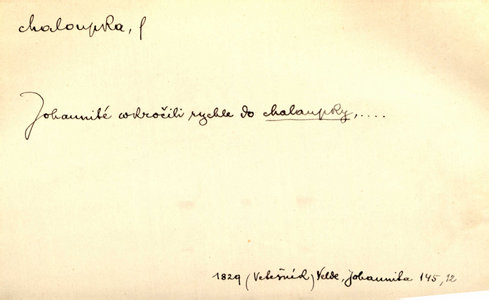 chaloupka, f
Johannité wkročili rychle do chalaupky,....
1829 (Vetešník) Velde, Johannita 145, 12